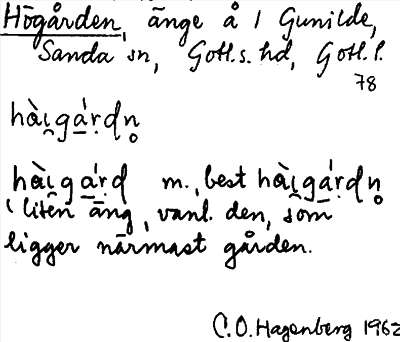 Högården, änge å / Gunilde,
Sanda sn, Gotl.s. hd, Gotl. l.
78
hài̯gá̱ṛdn̥
hài̯g á̱ṛd m., best hài̯gá̱ṛdn̥
' liten äng, vanl. den, som
ligger närmast gården.
C.O. Hagenberg 1962